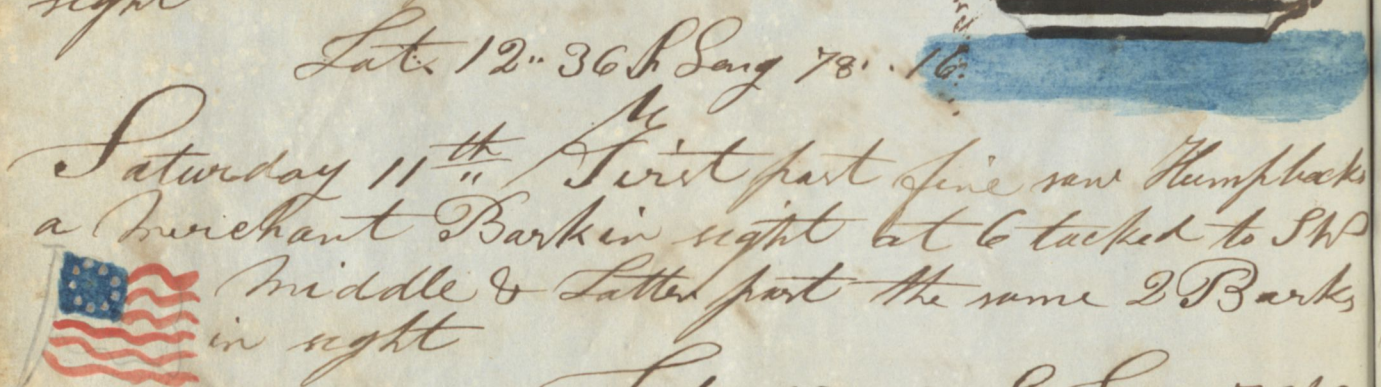 sight
Lat. 12" 36 S Long 78 . 16
Saturday 11th First part fine saw Humpbacks
a Merchant Bark in sight at 6 tacked to SW
Middle & Latter part the same 2 Barks
in sight